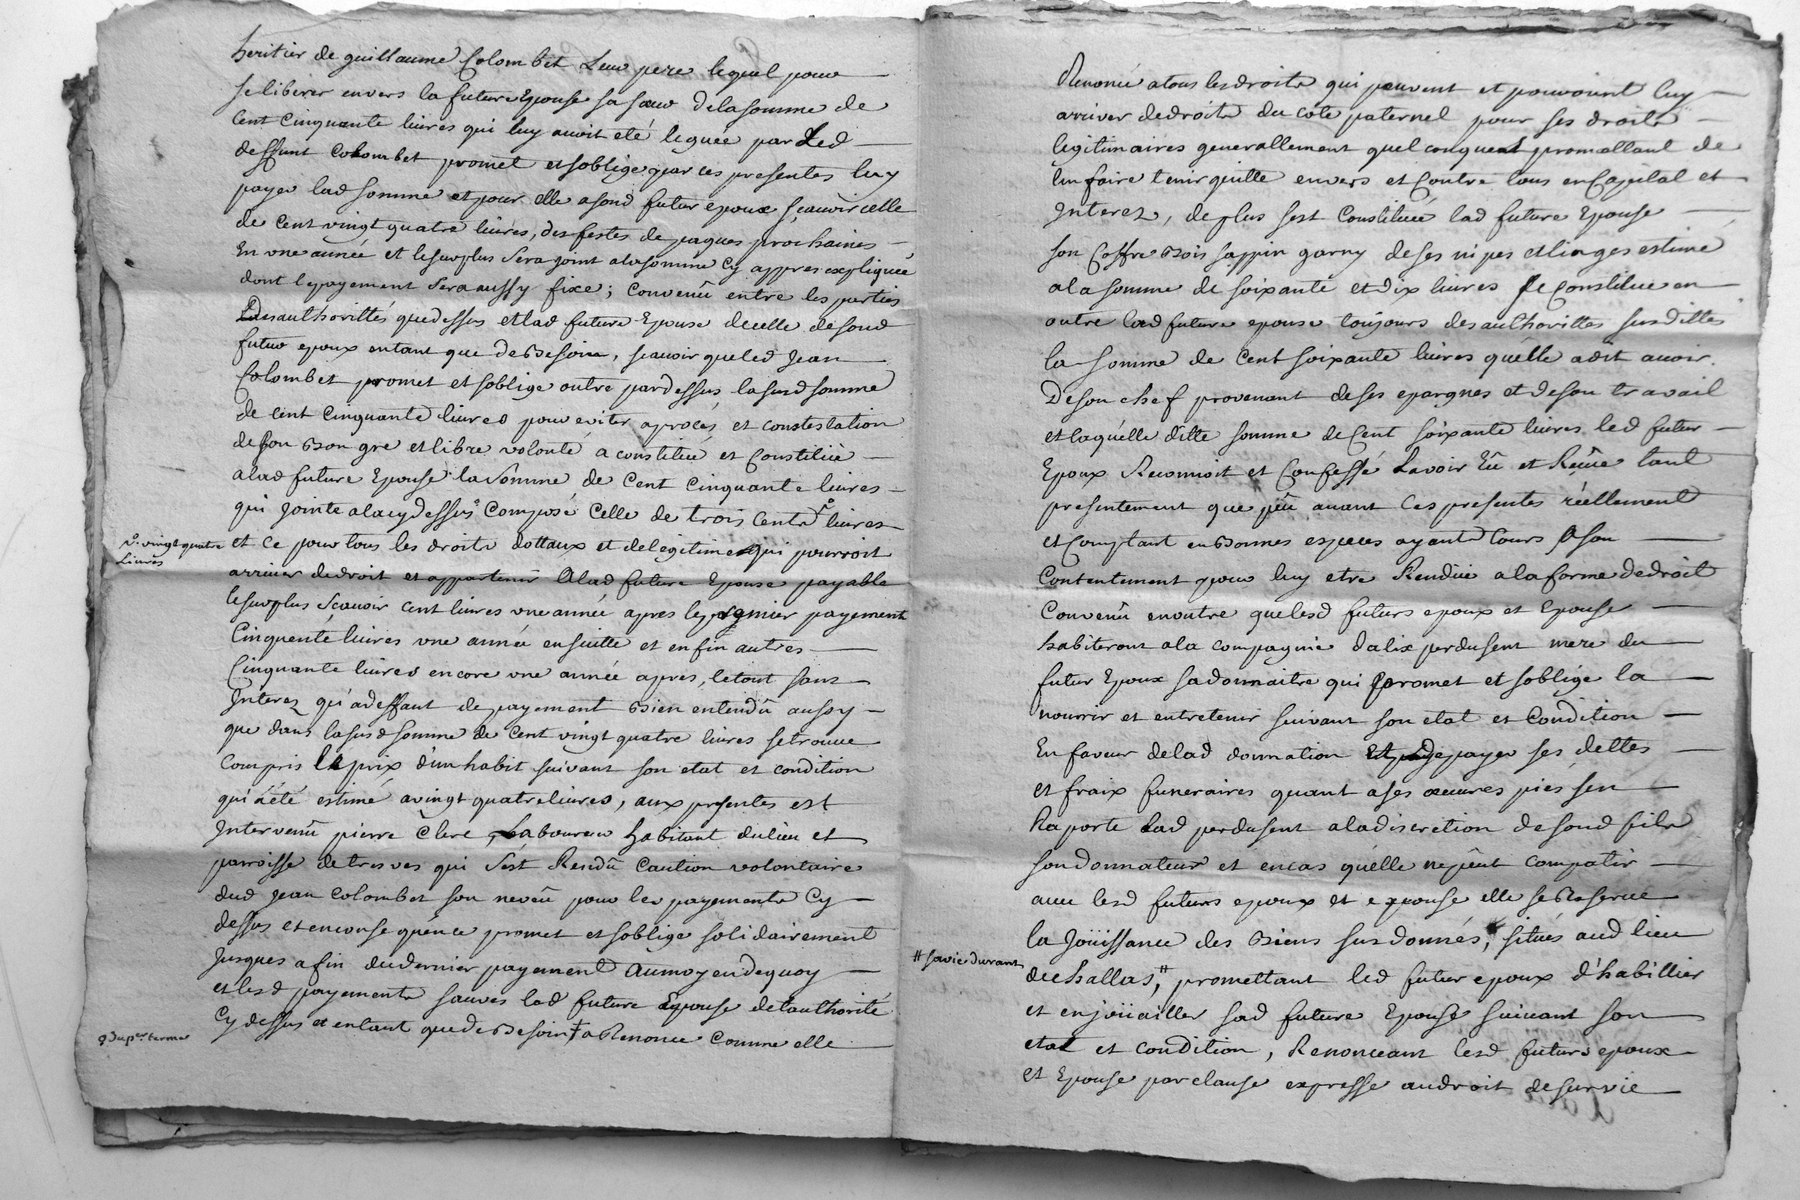 heritier de guillaume Colombet Leur pere lequel pour
se liberer envers la future Epouse sa sœur de la somme de
Cent Cinquante livres qui luy avoit eté leguée par Led
deffunt Colombet promet et soblige par ces presentes luy
payer lad somme et pour elle a sond futur epoux sçauoir celle
de Cent vingt quatre livres, des festes de paques prochaines
En vne année et le surplus sera joint a la somme Cy appres expliquée
dont le payement sera aussy fixe; Convenû entre les parties
authorittés que dessus et lad future Epouse de celle de sond
futur epoux entant que de Besoin, scauoir que led Jean
Colombet promet et soblige outre par dessus la susd somme
de cent Cinquante livres pour eviter a procés et constestation
de son Bon gre et libre volonté a constitué et Constitüe
a lad future Epouse la Somme de Cent Cinquante livres
qui jointe a la cy dessus Composé Celle de trois Cents livres
v. vingt quatre Livres
et ce pour tous les droits dottaux et de legitime qui pourroit
arriver de droit et appartenir A lad future Epouse payable
le surplus Scauoir cent livres vne année apres le premier payement
Cinquente livres vne année ensuitte et enfin autres
Cinquante livres encore vne année apres, le tout sans
Interez qu'a deffaut de payement Bien entendû aussy
que dans la susd somme de Cent vingt quatre livres se trouve
Compris le prix d'un habit suivant son etat et condition
qui a eté estimé a vingt quatre livres, aux presentes est
Intervenû pierre Clere Laboureur habitant du lieu et
parroisse de tresves qui s'est Rendû Caution volontaire
dud Jean Colombet son neveu pour les payements Cy
dessus et en conse quence promet et soblige solidairement
Jusques a fin du dernier payement Au moyen de quoy
et lesd payements sauves lad future Epouse de l'authorité
Cy dessus et entant que de Besoin a Renoncé Comme elle
du per. terme
Renonce a tous les droits qui peuvent et pouroint luy
arriver de droits du coté paternel pour ses droits
legitimaires generallement quelconques promettant de
len faire tenir quitte envers et Contre tous en Capital et
Interez, de plus sest Constituée lad future Epouse
son Coffre Bois sappin garny de ses nipes et linges estimé
a la somme de soixante et dix livres se constitue en
outre lad future epouse toujours des authorittés susdittes
la somme de Cent soixante livres qu'elle a dit auoir
De son chef provenant de ses epargnes et de son travail
et laquelle ditte somme de Cent soixante livres led futur
Epoux Reconnoit et Confesse Lavoir Eû et Reçüe tant
presentement que peu auant Ces presentes réellement
et Comptant en Bonnes especes ayants Cours A son
Contentement pour luy etre Rendüe a la forme de droit
Convenû en outre que lesd futurs epoux et Epouse
habiteront a la compagnie dalix perdusent mere du
futur Epoux sa donnaitre qui promet et soblige la
nourrir et entretenir suivant son etat et Condition
En faveur de lad donnation de payer ses dettes
et fraix funeraires quant a ses œuvres pies sen
Raporte Lad perdusent a la discretion de sond fils
son donnateur et en cas qu'elle ne peut compatir
avec lesd futurs epoux et epouse elle se Reserve
la Joüissance des Biens sus donnés, situés aud lieu
# sa vie durant
du challas,# promettant led futur epoux d'habillier
et enjoüailler sad future Epouse suivant son
etat et condition, Renonceant lesd futurs epoux
et Epouse par clause expresse au droit de survie